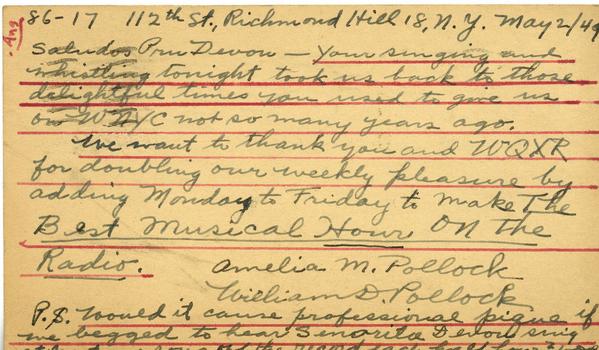 Ans
86-17 112th St., Richmond Hill 18, N.Y. May 2/49
Saludos Pru Devon — Your singing and
whistling tonight took us back to those
delightful times you used to give us
on WNYC not so many years ago.
We want to thank you and WQXR
for doubling our weekly pleasure by
adding Monday to Friday to make The
Best Musical Hour ON the
Radio. Amelia M. Pollock
William D. Pollock
P.S. Would it cause professional pique if
we begged to hear Senorita Devon sing